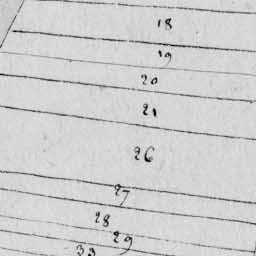 18
19
20
21
26
27
28
29
33